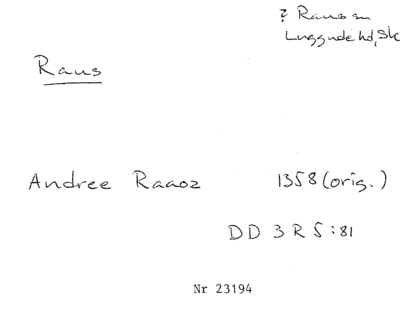 ? Raus sn
Luggude hd, Sk
Raus
Andree Raaoz 1358 (orig.)
DD 3 R 5:81
Nr 23194